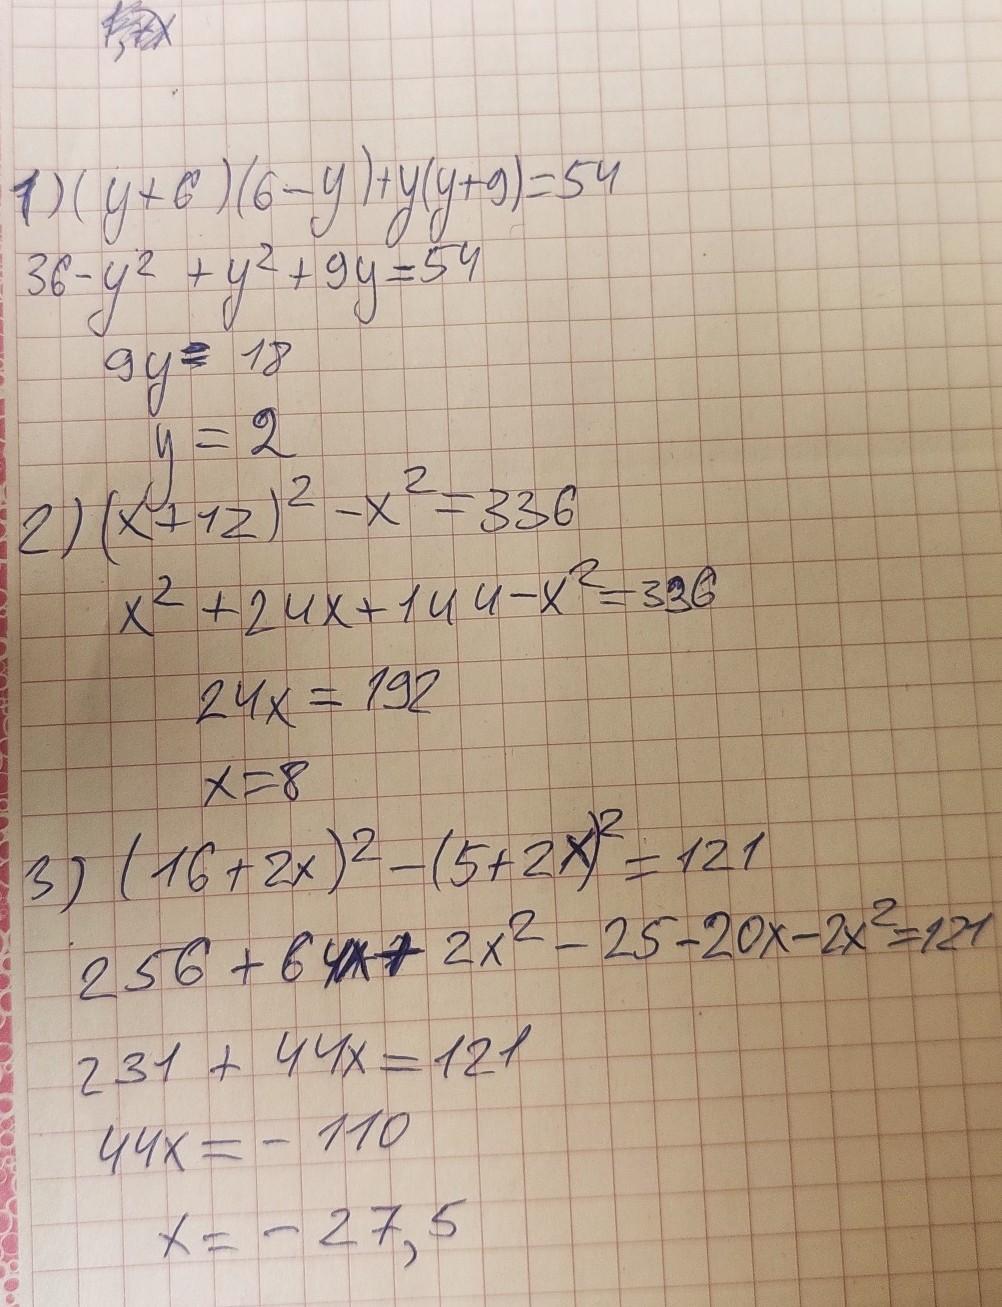 1) (y+6)(6-y)+y(y+9)=54
36-y² +y²+9y=54
9y= 18
y = 2
2) (x+12)² -x²=336
x² +24x+144-x²=336
24x = 192
x=8
3) (16+2x)² -(5+2x)² = 121
256 + 64x+ 2x² - 25-20x-2x²=121
231 + 44x=121
44x = - 110
x = - 27,5